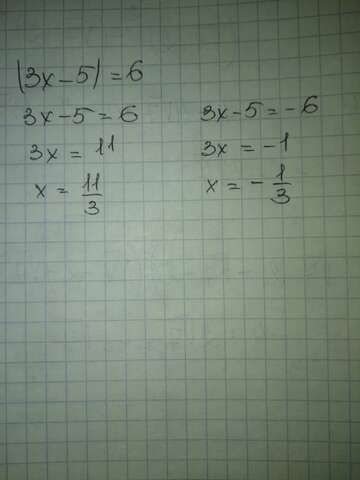 |3x-5|=6
3x-5=6
3x = 11
x = 11/3
3x-5=-6
3x = -1
x = -1/3